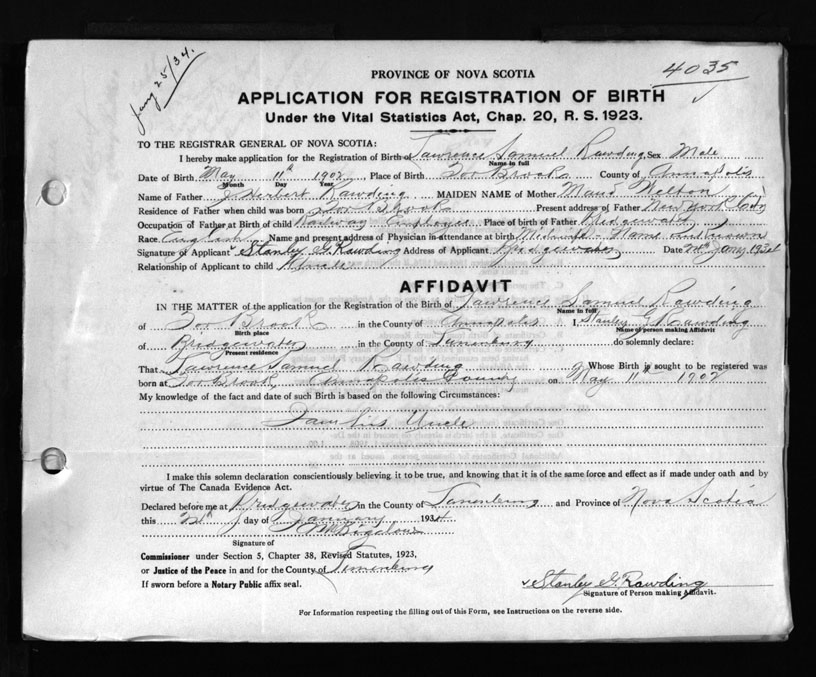 Jany 25/34.
4035
PROVINCE OF NOVA SCOTIA
APPLICATION FOR REGISTRATION OF BIRTH
Under the Vital Statistics Act, Chap. 20, R. S. 1923.
TO THE REGISTRAR GENERAL OF NOVA SCOTIA:
I hereby make application for the Registration of Birth of Lawrence Samuel Rawding, Sex Male
Name in full
Date of Birth May 11th 1902 Place of Birth Tor Brook County of Annapolis
Month Day Year
Name of Father J Herbert Rawding MAIDEN NAME of Mother Maud Welton
Residence of Father when child was born Tor Brook Present address of Father New York City
Occupation of Father at Birth of child Railway Employee Place of birth of Father Bridgewater
Race English Name and present address of Physician in attendance at birth Midwife - Name unknown
Signature of Applicant Stanley G. Rawding Address of Applicant Bridgewater Date Jany 1934
Relationship of Applicant to child Uncle
AFFIDAVIT
IN THE MATTER of the application for Registration of the Birth of Lawrence Samuel Rawding
Name in full
of Tor Brook in the County of Annapolis I, Stanley G Rawding
Birth place Name of person making Affidavit
of Bridgewater in the County of Lunenburg do solemnly declare:
Present residence
That Lawrence Samuel Rawding Whose Birth is sought to be registered was
born at Tor Brook, Annapolis County on May 11th 1902
My knowledge of the fact and date of such Birth is based on the following Circumstances:
I am his Uncle
I make this solemn declaration conscientiously believing it to be true, and knowing that it is of the same force and effect as if made under oath and by
virtue of The Canada Evidence Act.
Declared before me at Bridgewater in the County of Lunenburg and Province of Nova Scotia
this day of January 1934
Signature of
Commissioner under Section 5, Chapter 38, Revised Statutes, 1923,
or Justice of the Peace in and for the County of Lunenburg
If sworn before a Notary Public affix seal.
Stanley G. Rawding
Signature of Person making Affidavit.
For Information respecting the filling out of this Form, see Instructions on the reverse side.